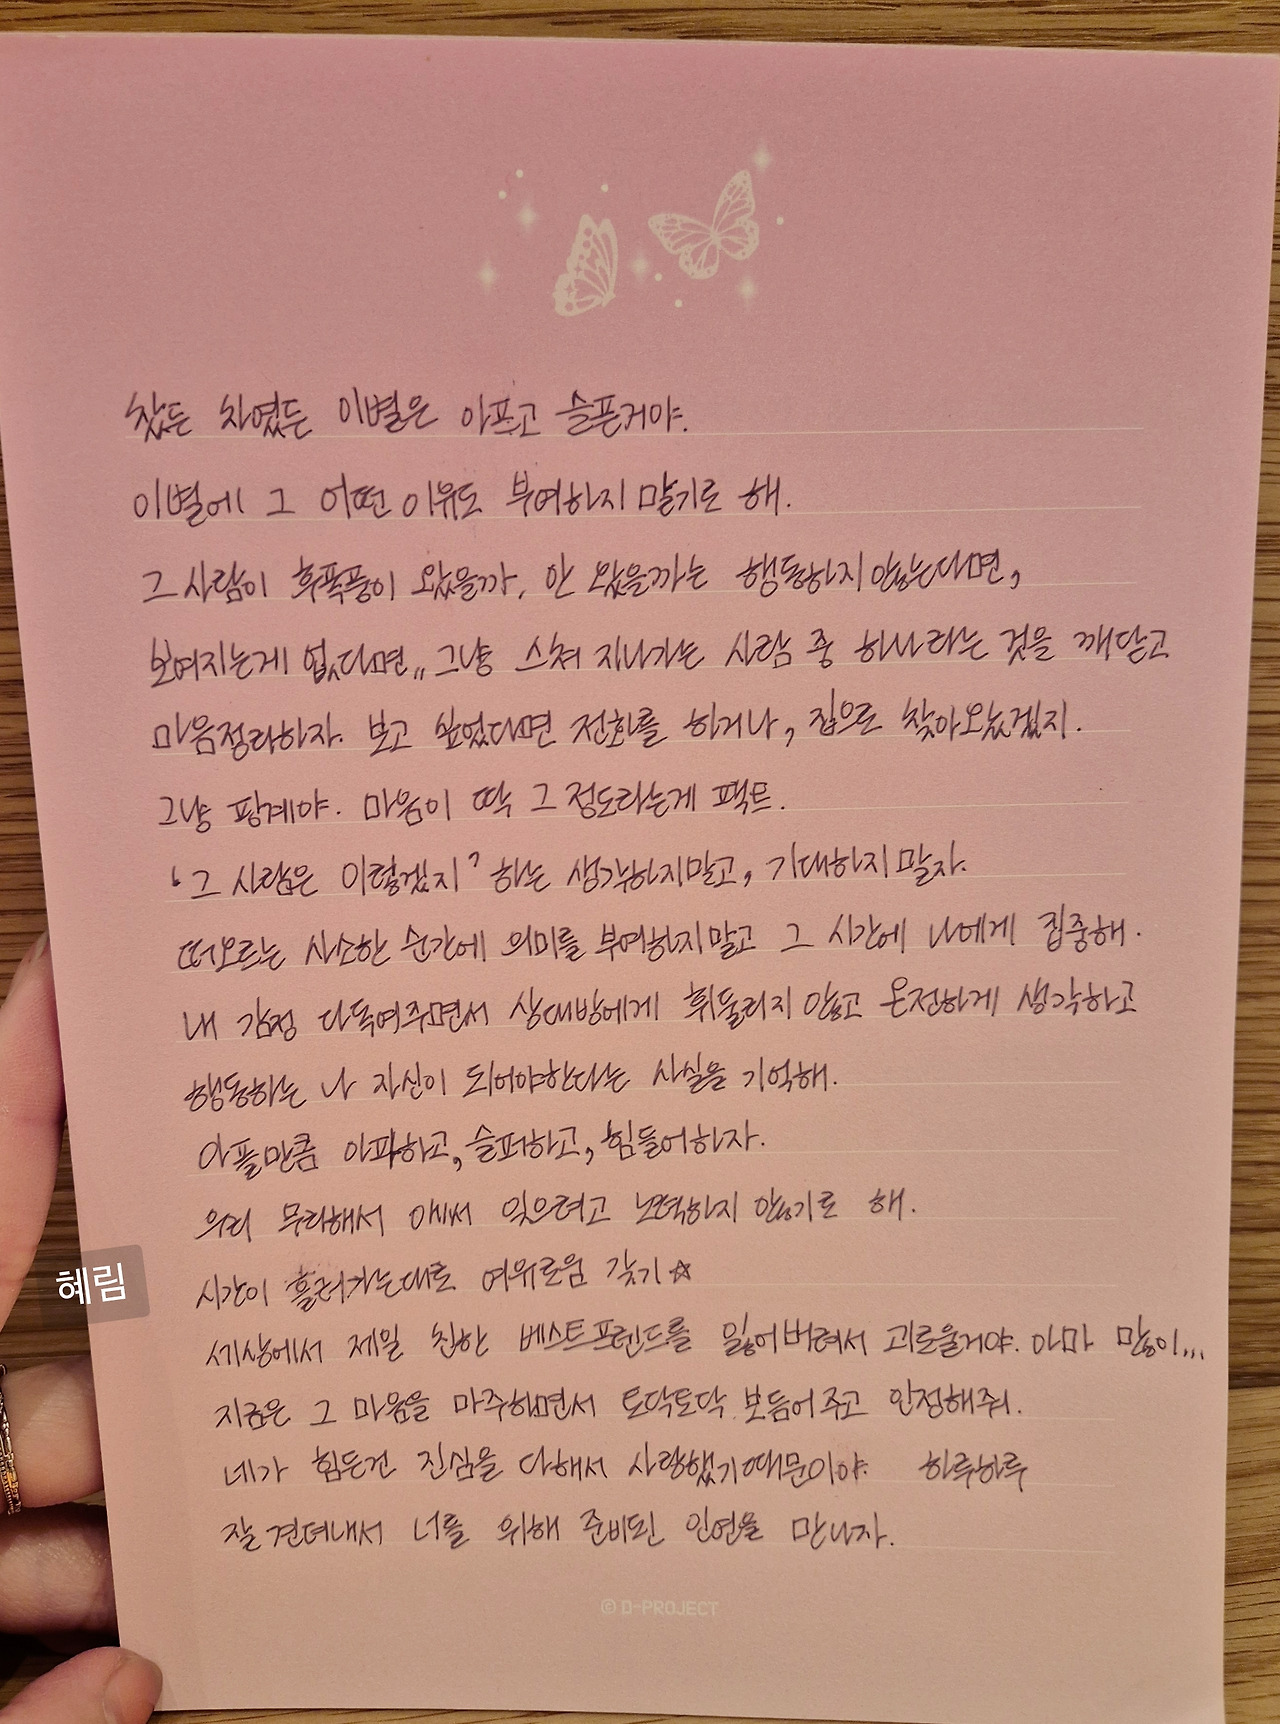 찼든 차였든 이별은 아프고 슬픈거야.
이별에 그 어떤 이유도 부여하지 말기로 해.
그 사람이 후폭풍이 왔을까, 안 왔을까는 행동하지 않는다면,
보여지는게 없다면,, 그냥 스쳐 지나가는 사람 중 하나라는 것을 깨닫고
마음정리하자. 보고 싶었다면 전화를 하거나, 집으로 찾아왔겠지.
그냥 핑계야. 마음이 딱 그 정도라는게 팩트.
'그 사람은 이렇겠지' 하는 생각하지말고, 기대하지말자.
떠오르는 사소한 순간에 의미를 부여하지말고 그 시간에 나에게 집중해.
내 감정 다독여주면서 상대방에게 휘둘리지 않고 온전하게 생각하고
행동하는 나 자신이 되어야한다는 사실을 기억해.
아플만큼 아파하고, 슬퍼하고, 힘들어하자.
우리 무리해서 애써 잊으려고 노력하지 않기로 해.
시간이 흘러가는대로 여유로움 갖기☆
혜림
세상에서 제일 친한 베스트프렌드를 잃어버려서 괴로울거야. 아마 많이...
지금은 그 마음을 마주하면서 토닥토닥 보듬어주고 안정해줘.
네가 힘든건 진심을 다해서 사랑했기때문이야. 하루하루
잘 견뎌내서 너를 위해 준비된 인연을 만나자.
© D-PROJECT